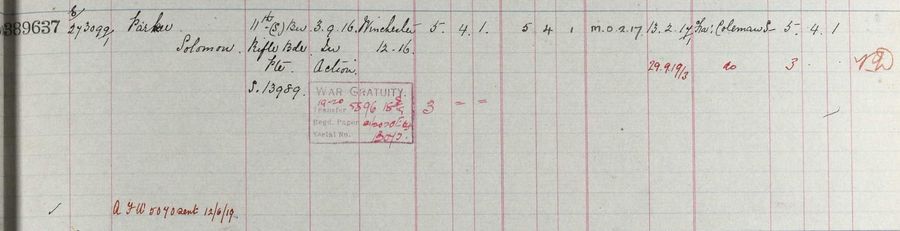 389637 E/273099/1 Parker 11th (S) Bn 3.9.16. Winchester 5. 4. 1. 5 4 1 M.O.2.17. 13.2.17 Coleman S 5. 4. 1
Solomon. Rifle Bde. In 12.16.
Pte. Action. 29.9.19/3 do 3
S. 13989.
WAR GRATUITY.
Transfer 3 - -
Regd. Paper
Serial No.
A F W 5070 sent 12/6/19.